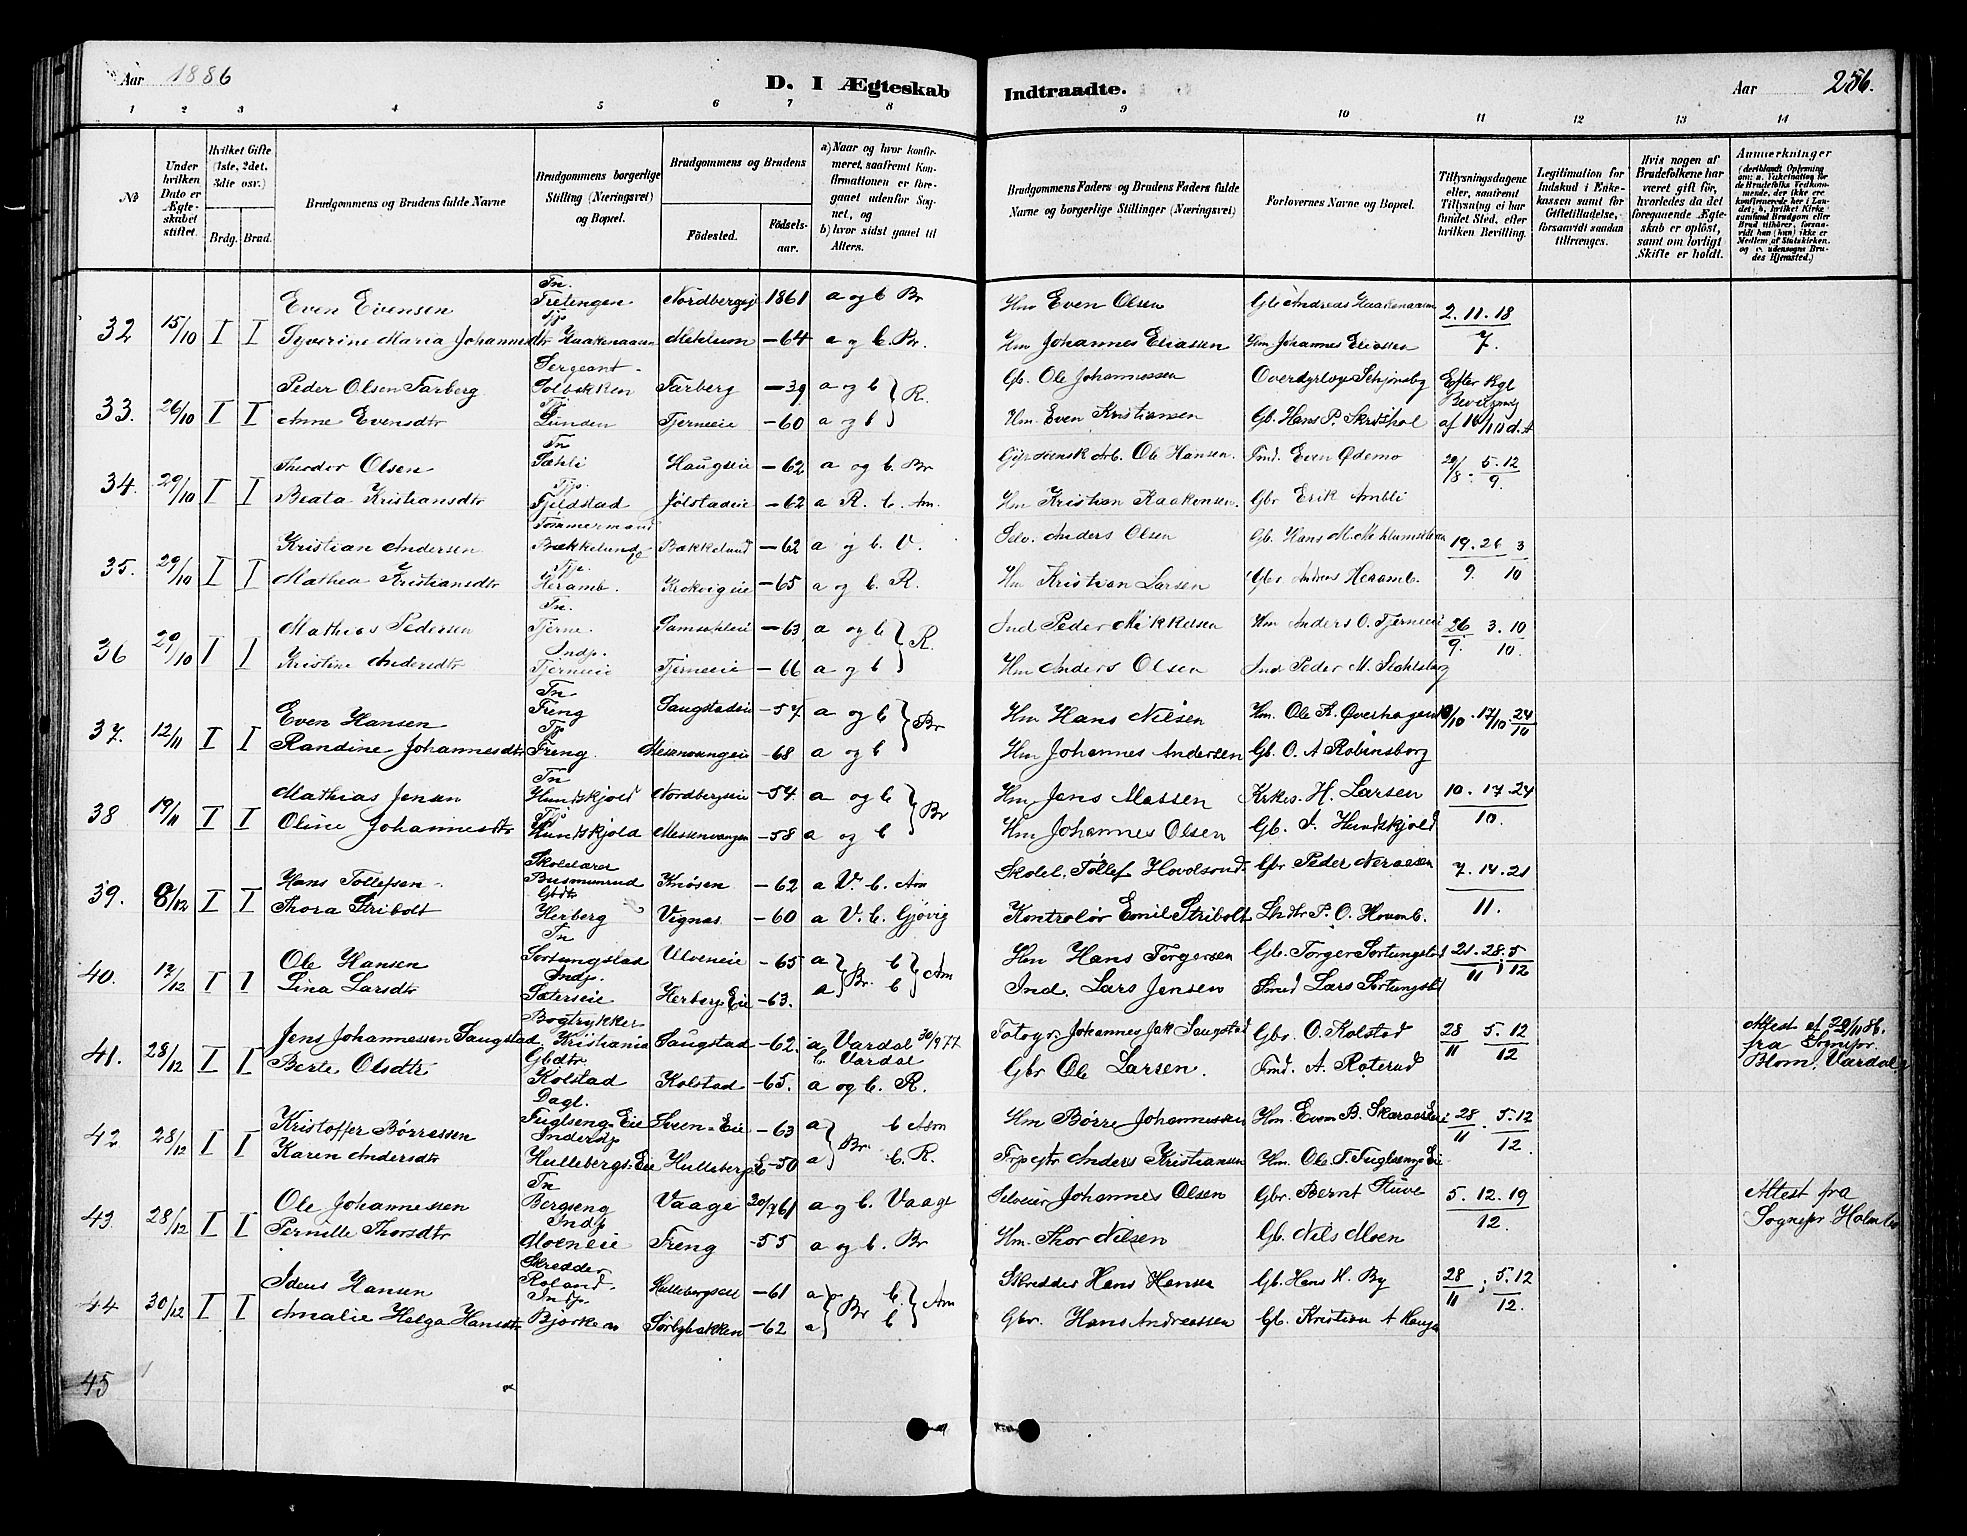 Aar 1886
D. I Ægteskab Indtraadte.
Aar 256.
1 2 3 4 5 6 7 8 9 10 11 12 13 14
No
Under hvilken Dato er Ægteskabet stiftet.
Hvilket Gifte (1ste, 2det, 3die osv.)
Brdg. Brud.
Brudgommens og Brudens fulde Navne
Brudgommens borgerlige Stilling (Næringsvei) og Bopæl.
Brudgommens og Brudens
Fødested. Fødselsaar.
a) Naar og hvor konfirmeret, saafremt Konfirmationen er foregaaet udenfor Sognet, og
b) hvor sidst gaaet til Alters.
Brudgommens Faders og Brudens Faders fulde Navne og borgerlige Stillinger (Næringsvei)
Forlovernes Navne og Bopæl.
Tillysningsdagene eller, saafremt Tillysning ei har fundet Sted, efter hvilken Bevilling.
Legitimation for Indskud i Enkekassen samt for Giftetilladelse, forsaavidt saadan tiltrænges.
Hvis nogen af Brudefolkene har været gift før, hvorledes da det foregaaende Ægteskab er opløst, samt om lovligt Skifte er holdt.
Anmerkninger
32 15/10 I I Even Evensen Tn. Frelengen Nordbergeje 1861 a og b Br Hm Even Olsen Gb Andreas Haakenaasen 2. 11. 18
Syverine Maria Johannesdtr Tjp Haakenaasen Mehlum —64 a og b. Br. Hm Johannes Eliassen Hm Johannes Eliassen 7.
33. 26/10 I I Peder Olsen Farberg Sergeant Solbakken Farberg —39 a og b } R. Gb. Ole Johannessen Efter Kgl
Anne Evensdtr Tjp Lunden Tjerneeie —60 a og b Hm. Even Kristiansen Gb. Hans P. Skridshol Bevilling af 16/10 d.A
34. 29/10 I I Theodor Olsen Tn Sæhli Haugseie —62 a og b. Br Ole Hansen. Fmd. Even Ødemo 29/8. 5. 12
Beata Kristiansdtr Tjp. Fjeldstad Jølstadeie —62 a R. b. Am. Hm Kristian Haakensen. Gbr Erik Ambli 9.
35. 29/10 I I Kristian Andersen Tømmermand Bækkelund Bækkelund —62 a og b. V. Selv. Anders Olsen Gb. Hans M. 19. 26 3
Mathea Kristiansdtr Tjp. Heramb. Krokvigeie —65 a og b. R. Hm Kristian Larsen Gbr Andreas Heramb. 9. 10
36 29/10 I I Mathias Pedersen Tn. Tjerne. —63 a og b } R. Ind Peder Mikkelsen Hm Anders O. Tjerneeie 26 3. 10
Kristine Andersdtr Indp. Tjerneeie Tjerneeie —66 a og b Hm Anders Olsen Ind Peder M. 9. 10.
37. 12/11 I I Even Hansen Tn Freng Saugstadeie —57 a og b } Br Hm Hans Nilsen Hm. Ole A. Øverhagen /10. 17/10. 24
Randine Johannesdtr Tjp Freng. Messenvangeie —68 a og b Hm Johannes Andersen Gb. O. A Robinsborg 10
38 19/11 I I Mathias Jensen Tn Hundskjold Nordbergseie —54. a og b } Br Hm Jens Massen Krkes. H. Larsen 10. 17. 24
Oline Johannesdtr Tjp Hundskjold Messenvangen —58 a og b Hm Johannes Olsen Gb. I. Hundskjold 10.
39. 8/12 I I Hans Tollefsen Skolelærer Busmunrud Knøsen —62 a V. b. Am Skolel. Tollef Hovdsrud Gbr Peder Neraasen 7. 14. 21
Thora Stribolt Gbdtr Herberg Vignas —60 a V. b. Gjøvig Kontrolør Emil Stribolt Lndtr P. O. Homb. 11.
40. 17/12 I I Ole Hansen Tn Sortungstad Ulveneie —65 a } Br. b } Am Hm Hans Torgersen Gb. Torger Sortungstad 21. 28. 5
Lina Larsdtr Indp. Sæterseie Herbergs Eie —63. a b Ind. Lars Jensen Smed Lars Sortungstad 11 12
41. 28/12 I I Jens Johannessen Saugstad, Bogtrykker Kristiania Saugstad —62. a Vardal 30/9 77 b Vardal Fotogr. Johannes Jak Saugstad Gbr. O. Kolstad 28 5. 12 Attest af 29/11 86.
Berte Olsdtr Gbdtr Kolstad Kolstad —65. a og b. R. Gbr Ole Larsen. Fmd. A. Roterud 11 12 fra Sognepr. Blom, Vardal
42 28/12 I I Kristoffer Børresen Dagl. Fuglseng Eie Sveen-Eie —63 a } Br b Am Hm Børre Johannessen Hm. Even B. 28 5. 12
Karen Andersdtr Inderstp Hullebergs Eie Hullebergs E —50 a b. R. Anders Kristiansen Hm. Ole T. Fuglsengs Eie 11. 12.
43. 28/12 I I Ole Johannessen Tn Bergseng Vaage 20/7 61 a og b. Vaage Selveier Johannes Olsen Gbr. Bernt Stuve 5. 12. 19 Attest fra
Pernille Thorsdtr Indp Moeneie Freng -55 a og b. Br Hm. Thor Nilsen Gb. Nils Moen 12. Sognepr Holmbo
44 30/12 I I Ideus Hansen Skredder Roland Hullebergseie —61 a } Br b. } Am Skredder Hans Hansen Gb. Hans H. By 28 ; 5. 12
Amalie Helga Hansdtr Indp. Bjørken Sørbybakken —62 a b Gbr. Hans Andreassen Gb. Kristian A Haugen 11 12.
45